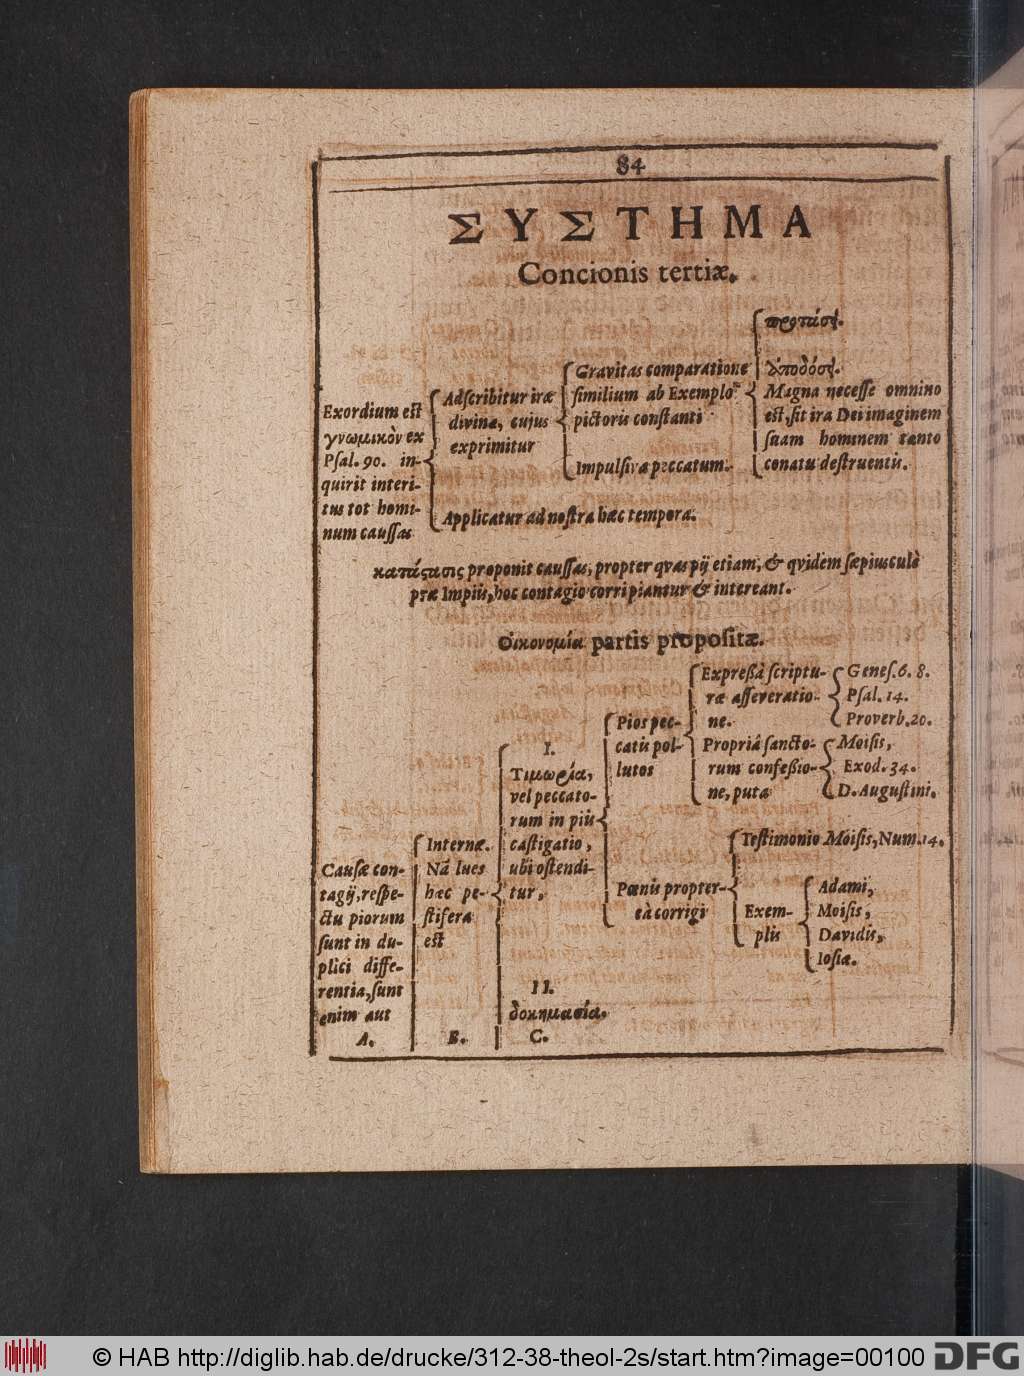 84
ΣΥΣΤΗΜΑ
Concionis tertiæ.
Exordium est
γνωμικὸν ex
Psal. 90. in-
quirit interi-
tus tot homi-
num caussas
Adscribitur iræ
divinæ, cujus
exprimitur
Gravitas comparatione
similium ab Exemplo
pictoris constanti
προτάσῃ.
Ἀποδόσῃ.
Magna necesse omnino
est, sit ira Dei imaginem
suam hominem tanto
conatu destruentis.
Impulsiva peccatum.
Applicatur ad nostra hæc tempora.
κατάστασις proponit caussas, propter qvas pij etiam, & qvidem sæpiusculè
præ Impiis, hoc contagio corripiantur & intereant.
Οἰκονομία partis propositæ.
Causæ con-
tagij, respe-
ctu piorum
sunt in du-
plici diffe-
rentia, sunt
enim aut
A.
Internæ.
Nã lues
hæc pe-
stifera
est
B.
I.
Τιμωρία,
vel peccato-
rum in piis
castigatio,
ubi ostendi-
tur,
Pios pec-
catis pol-
lutos
Expreßâ scriptu-
ræ asseveratio-
ne.
Genes. 6. 8.
Psal. 14.
Proverb. 20.
Propriâ sancto-
rum confeßio-
ne, puta
Moisis,
Exod. 34.
D. Augustini.
Pœnis propter-
eà corrigi
Testimonio Moisis, Num. 14.
Exem-
plis
Adami,
Moisis,
Davidis,
Iosiæ.
II.
δοκημασία.
C.
© HAB http://diglib.hab.de/drucke/312-38-theol-2s/start.htm?image=00100
DFG